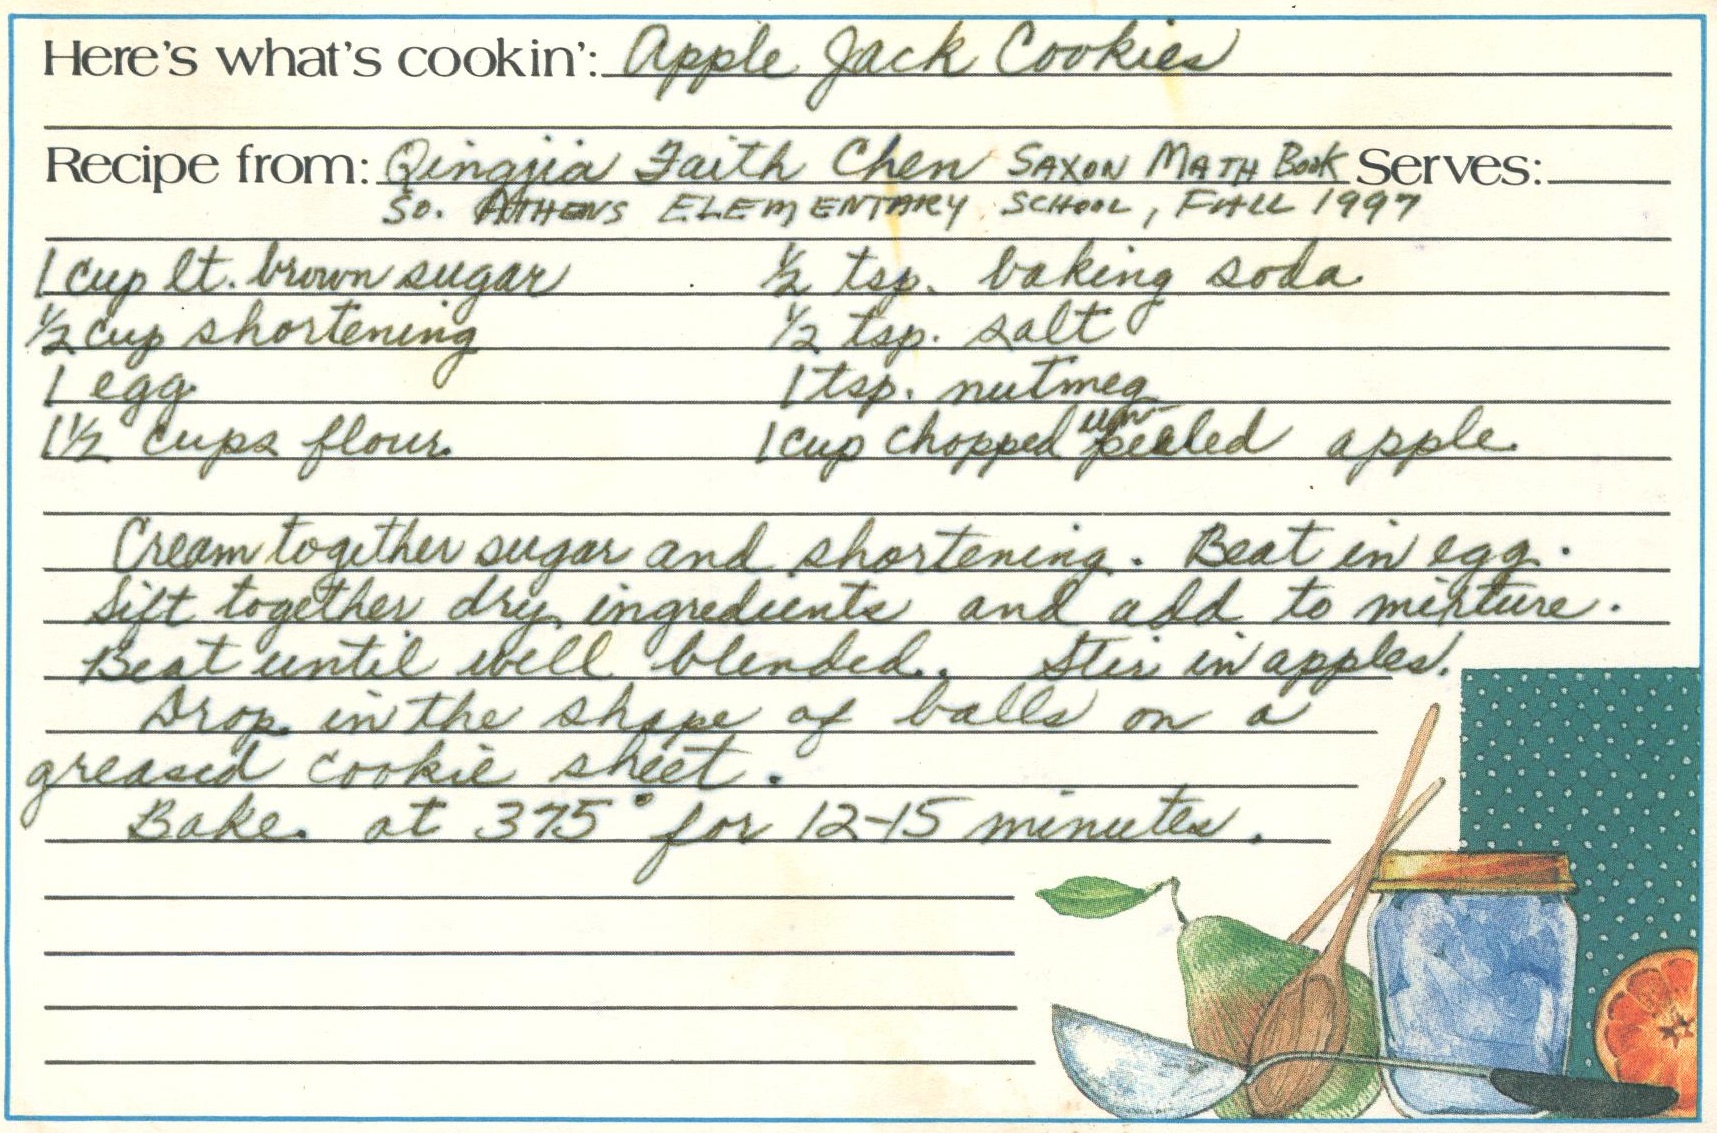 Here's what's cookin': Apple Jack Cookies
Recipe from: Qingjia Faith Chen SAXON MATH BOOK Serves:
SO. ATHENS ELEMENTARY SCHOOL, FALL 1997
1 cup lt. brown sugar ½ tsp. baking soda
½ cup shortening ½ tsp. salt
1 egg 1 tsp. nutmeg
1½ cups flour 1 cup chopped unpeeled apple
Cream together sugar and shortening. Beat in egg.
Sift together dry ingredients and add to mixture.
Beat until well blended. Stir in apples.
Drop in the shape of balls on a
greased cookie sheet.
Bake at 375° for 12-15 minutes.